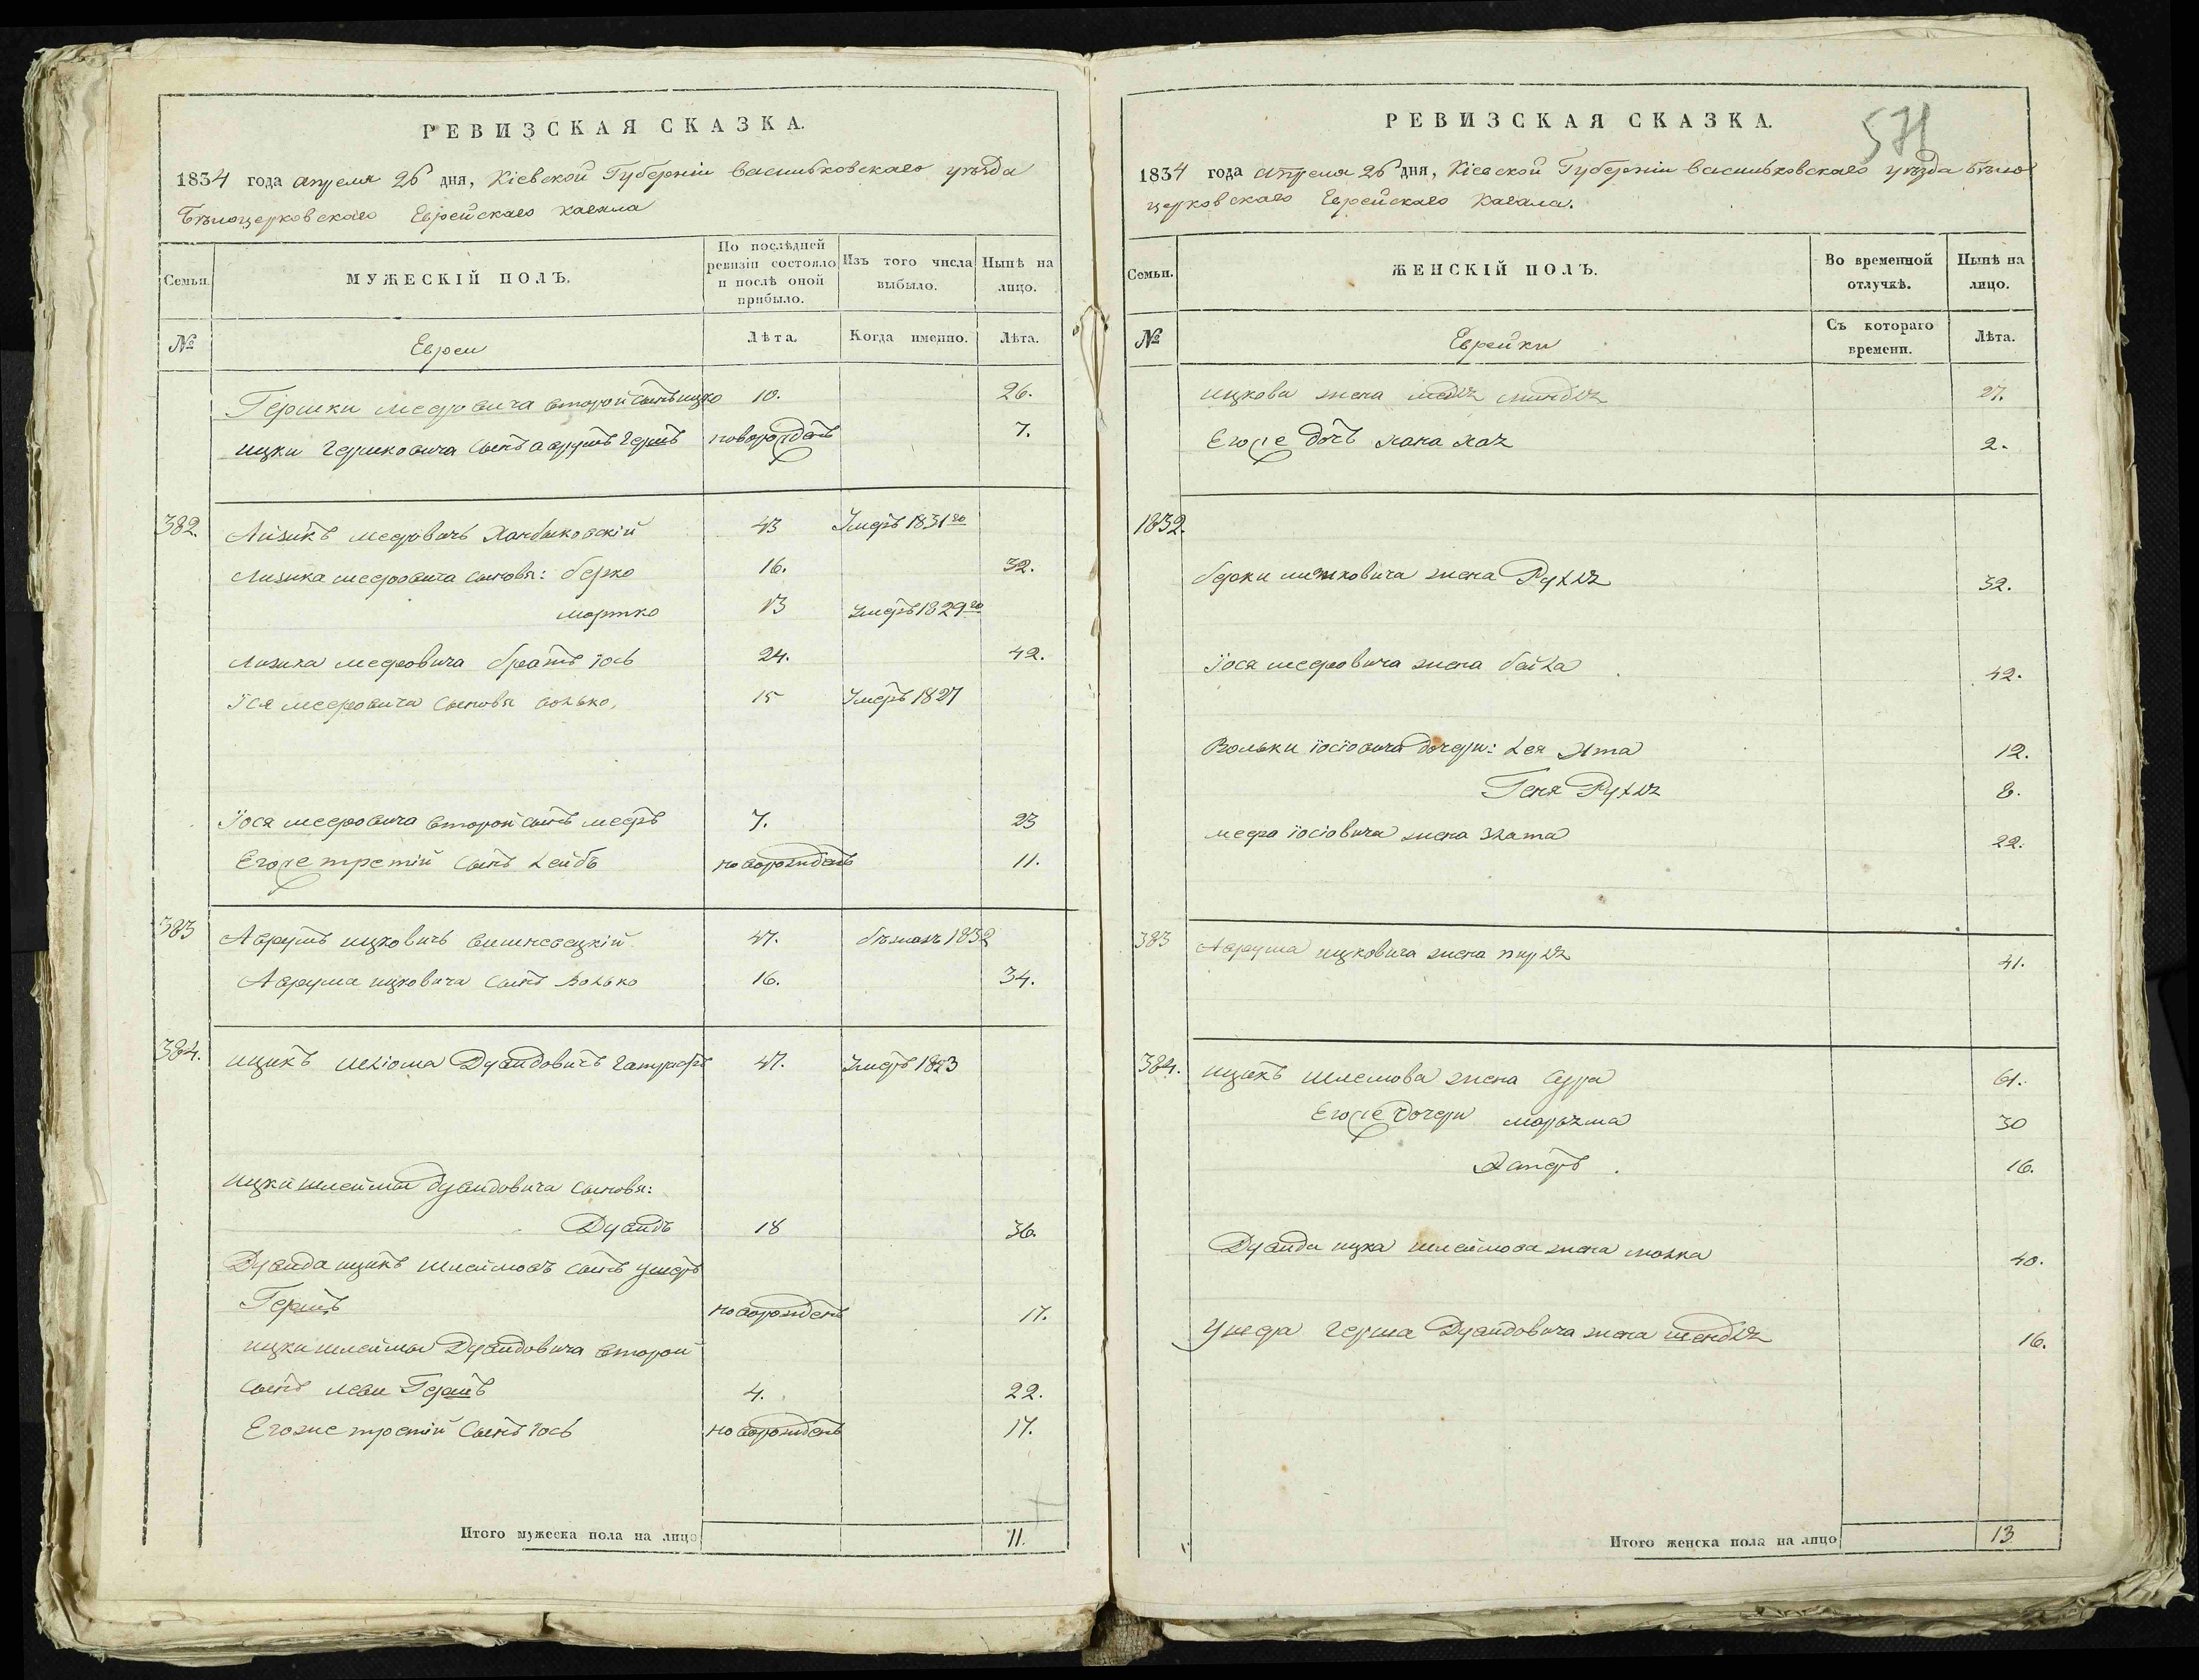 РЕВИЗСКАЯ СКАЗКА.
1834 года апреля 26 дня, Кіевской Губерніи васильковскаго уѣзда
Бѣлоцерковскаго Еврейскаго кагала
Семьи.
МУЖЕСКІЙ ПОЛЪ.
По послѣдней ревизіи состояло и послѣ оной прибыло.
Изъ того числа выбыло.
Нынѣ на лицо.
№
Евреи
Лѣта.
Когда именно.
Лѣта.
Гершки мееровича второй сынъ ицко 10. 26.
ицки Гершковича сынъ аврумъ Гершъ новорожденъ 7.
382. Айзикъ меаровичъ 43 Умеръ 1831го
Айзика мееровича сыновья: берко 16. 32.
мортко 13 Умеръ 1829го
Айзика мееровича братъ іось 24. 42.
Іося мееровича сыновья волько, 15 Умеръ 1827
Іося мееровича второй сынъ мееръ 7. 23
Егоже третій сынъ Лейбъ новорожденъ 11.
383 Аврумъ ицковичъ вишневецкій 47. бѣжалъ 1832
Аврума ицковича сынъ Волько 16. 34.
384. ицикъ шліома Дувидовичъ 47. Умеръ 1823
ицки шлеймы дувидовича сыновья:
Дувидъ 18 36.
Дувида ицикъ шлеймовъ сынъ ушеръ
Гершъ новорожденъ 17.
ицки шлеймы Дувидовича второй
сынъ леви Гершъ 4. 22.
Егоже третій сынъ іось новорожденъ 17.
Итого мужеска пола на лицо 11.
РЕВИЗСКАЯ СКАЗКА.
571
1834 года апреля 26 дня, Кіевской Губерніи васильковскаго уѣзда бѣло
церковскаго Еврейскаго кагала.
Семьи.
ЖЕНСКІЙ ПОЛЪ.
Во временной отлучкѣ.
Нынѣ на лицо.
№
Еврейки
Съ котораго времени.
Лѣта.
ицкова жена миндля 27.
Егоже дочь хана хая 2.
1832.
берки жена Рухля 32.
Іося мееровича жена бейла 42.
Вольки іосіовича дочери: Лея Ита 12.
Геня Рухля 8.
меера іосіовича жена злата 22.
383 Аврума ицковича жена перля 41.
384. ицикъ шлемова жена сура 61.
Егоже дочери 30
16.
Дувида ицка шлеймова жена 40.
Ушера Герша Дувидовича жена шендля 16.
Итого женска пола на лицо 13